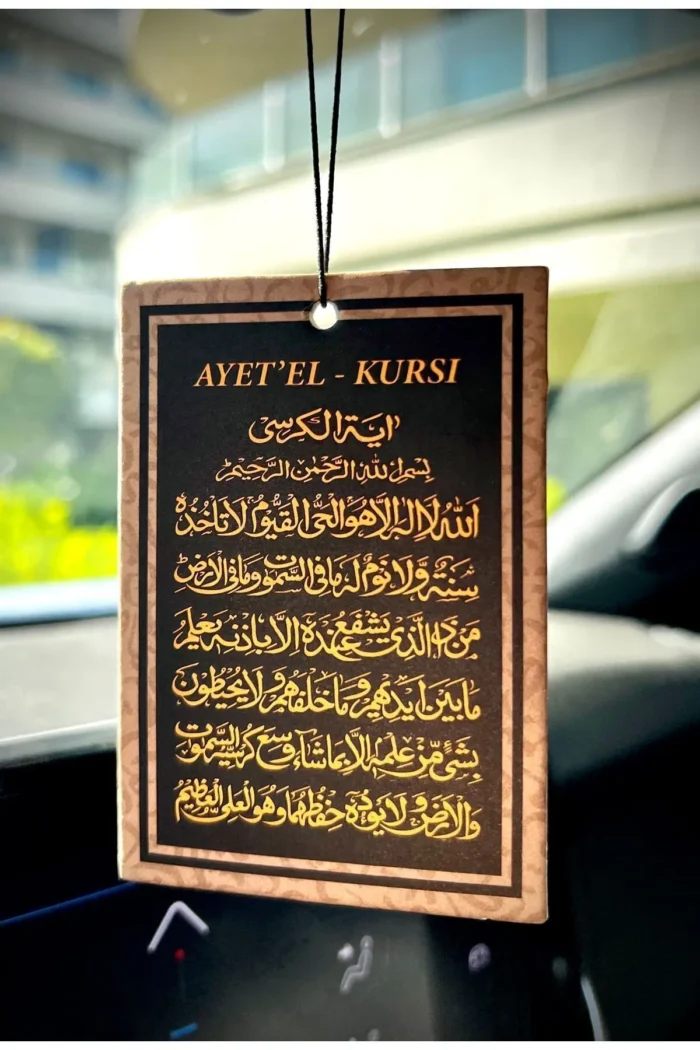 AYET'EL - KURSI
اية الكرسى
بسم الله الرحمن الرحيم
الله لا اله الا هو الحى القيوم لا تأخذه
سنة ولا نوم له ما فى السموت وما فى الارض
من ذا الذى يشفع عنده الا باذنه يعلم
ما بين ايديهم وما خلفهم ولا يحيطون
بشئ من علمه الا بما شاء وسع كرسيه السموت
والارض ولا يؤده حفظهما وهو العلى العظيم